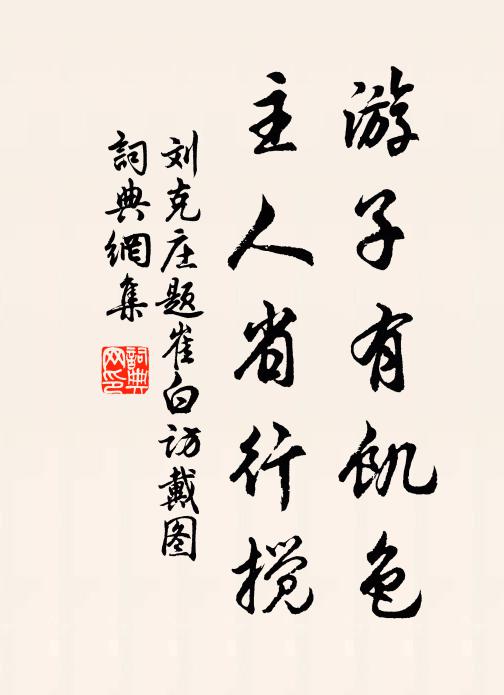 游子有飢色
主人省行搅
刘克庄题崔白访戴图
詞典網集
詞典
网印